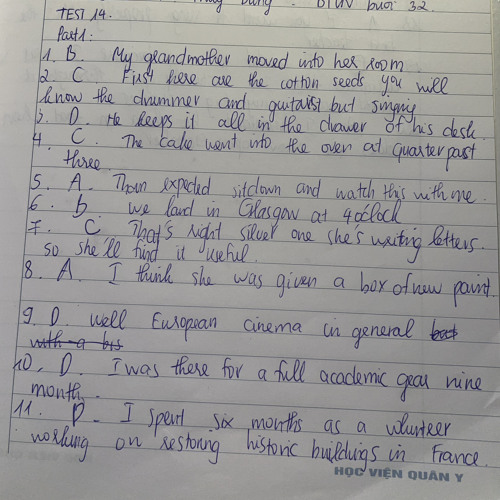 BTVN buổi 32.
TEST 14.
Part 1:
1. B. My grandmother moved into her room
2. C First here are the cotton seeds you will
know the drummer and guitarist but singing
3. D. He keeps it all in the drawer of his desk.
4. C. The cake went into the oven at quarter past
three
5. A. Than expected sitdown and watch this with me.
6. b. we land in Glasgow at 4 o'clock
7. C. That's right silver one she's writing letters.
so she'll find it useful.
8. A. I think she was given a box of new paint.
9. D. well European cinema in general but
with a bis
10. D. I was there for a full academic gear nine
month.
11. D. I spent six months as a volunteer
working on restoring historic buildings in France.
HỌC VIỆN QUÂN Y